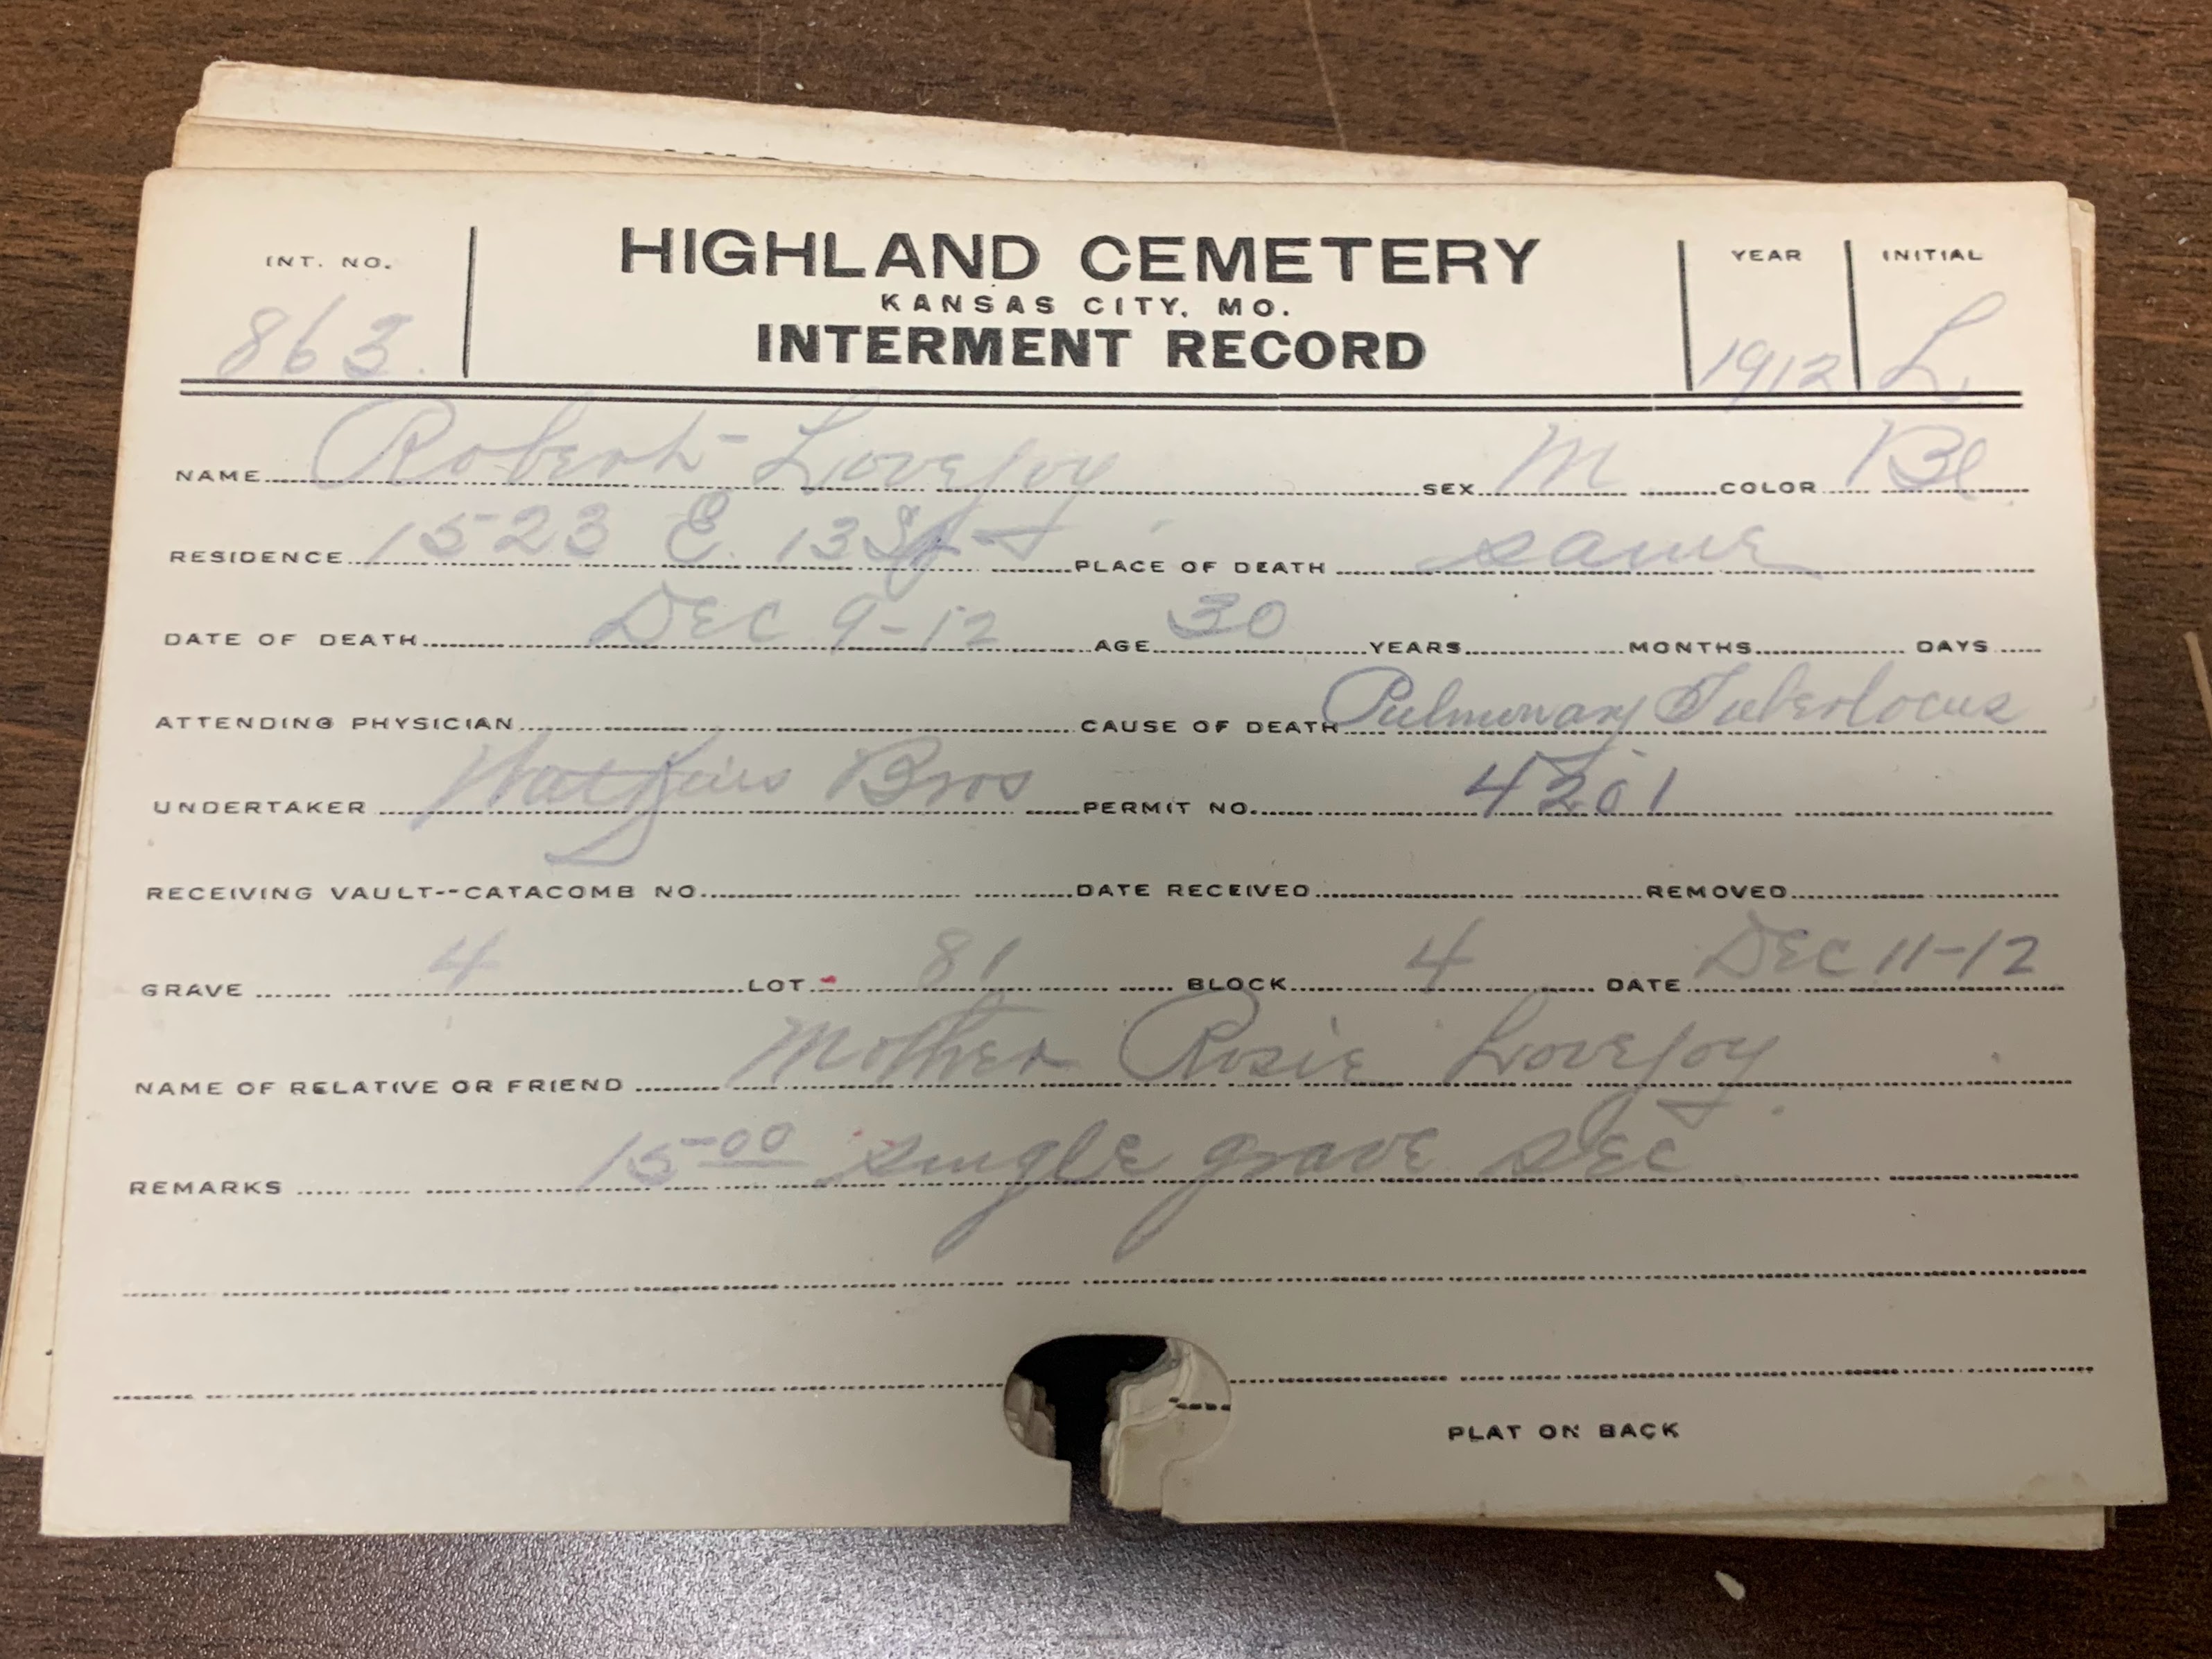 INT. NO. HIGHLAND CEMETERY YEAR INITIAL
KANSAS CITY, MO.
863. INTERMENT RECORD 1912 L.
NAME Robert Lovejoy SEX M COLOR Bl
RESIDENCE 1523 E. 13 St PLACE OF DEATH same
DATE OF DEATH DEC 9-12 AGE 30 YEARS MONTHS DAYS
ATTENDING PHYSICIAN CAUSE OF DEATH Pulmonary Tuberlocus
UNDERTAKER Watkins Bros PERMIT NO. 4201
RECEIVING VAULT--CATACOMB NO. DATE RECEIVED REMOVED
GRAVE 4 LOT 81 BLOCK 4 DATE DEC 11-12
NAME OF RELATIVE OR FRIEND Mother Rosie Lovejoy
REMARKS 15.00 single grave SEC
PLAT ON BACK